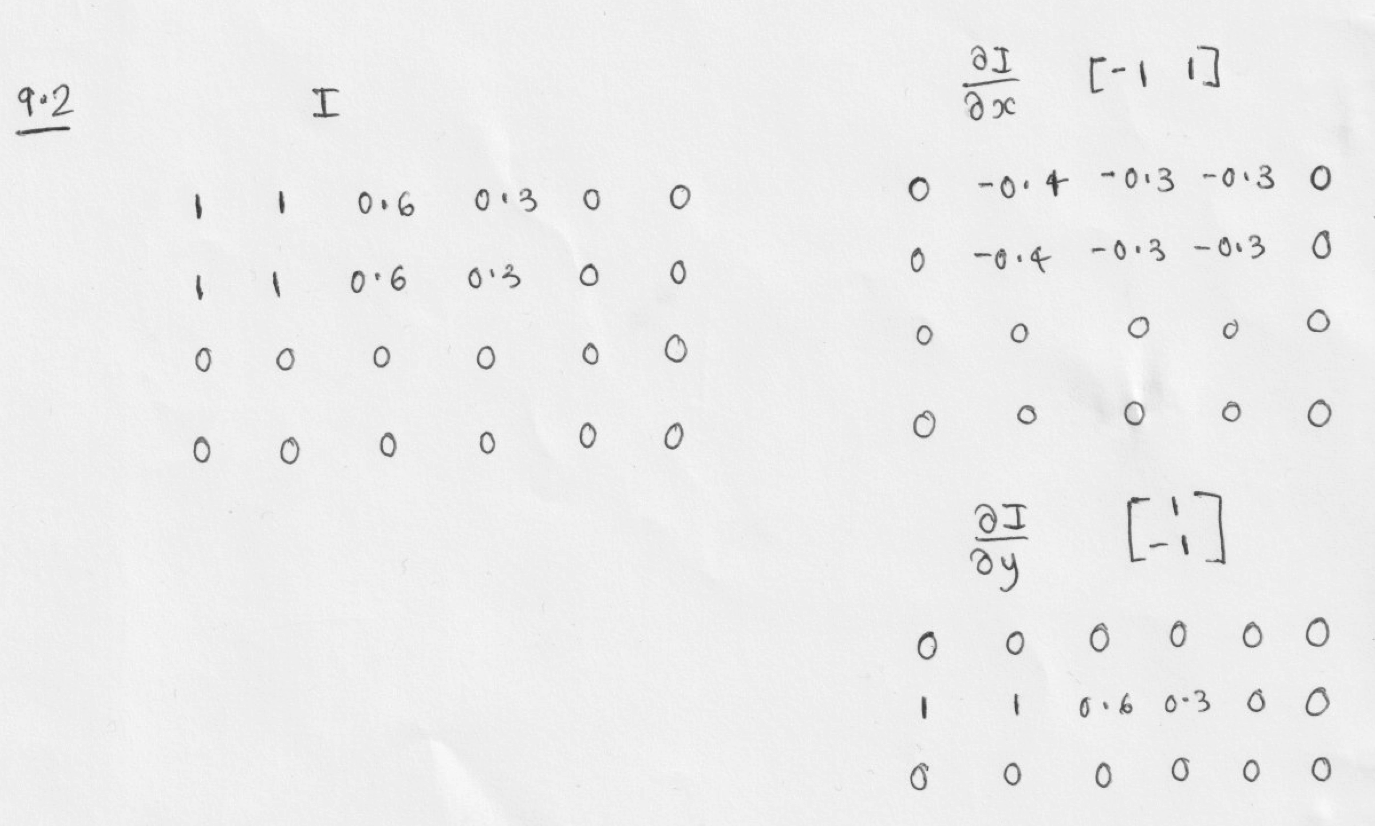 9.2
I
1 1 0.6 0.3 0 0
1 1 0.6 0.3 0 0
0 0 0 0 0 0
0 0 0 0 0 0
∂I/∂x [-1 1]
0 -0.4 -0.3 -0.3 0
0 -0.4 -0.3 -0.3 0
0 0 0 0 0
0 0 0 0 0
∂I/∂y [1
-1]
0 0 0 0 0 0
1 1 0.6 0.3 0 0
0 0 0 0 0 0